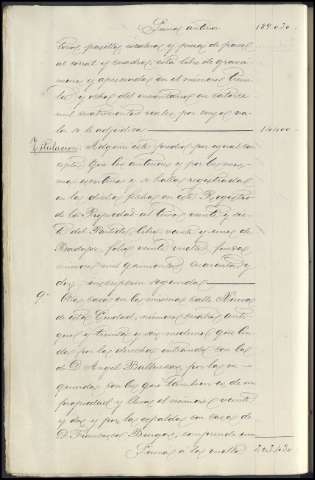 Suma anterior 189.030
toros, paredes, escaleras y piezas de paso,
al corral y cuadras, está libre de grava
men y apreciada en el número
y ocho del inventario en catorce
mil cuatrocientos reales por cuyo va
lor se le adjudica 14.400
Titulacion. Adquirió este predio por igual con
cepto que los anteriores y por la mis
ma escritura y se halla registrada
en la dicha fecha en este Registro
de la Propiedad al tomo veinte y
del Partido, libro veinte y uno de
Badajoz, folio veinte vuelto, finca
número mil quinientos cuarenta y
dos inscripcion segunda.
9ª Otra casa en la misma calle Nueva
de esta Ciudad, número treinta anti
guo y treinta y seis moderno que lin
da por la derecha entrando con la
de D. Angel por la iz
quierda con la que tambien es de su
propiedad y lleva el número veinte
y dos y por la espalda con casas de
D. Francisco comprende un
Suma a la vuelta 203.430